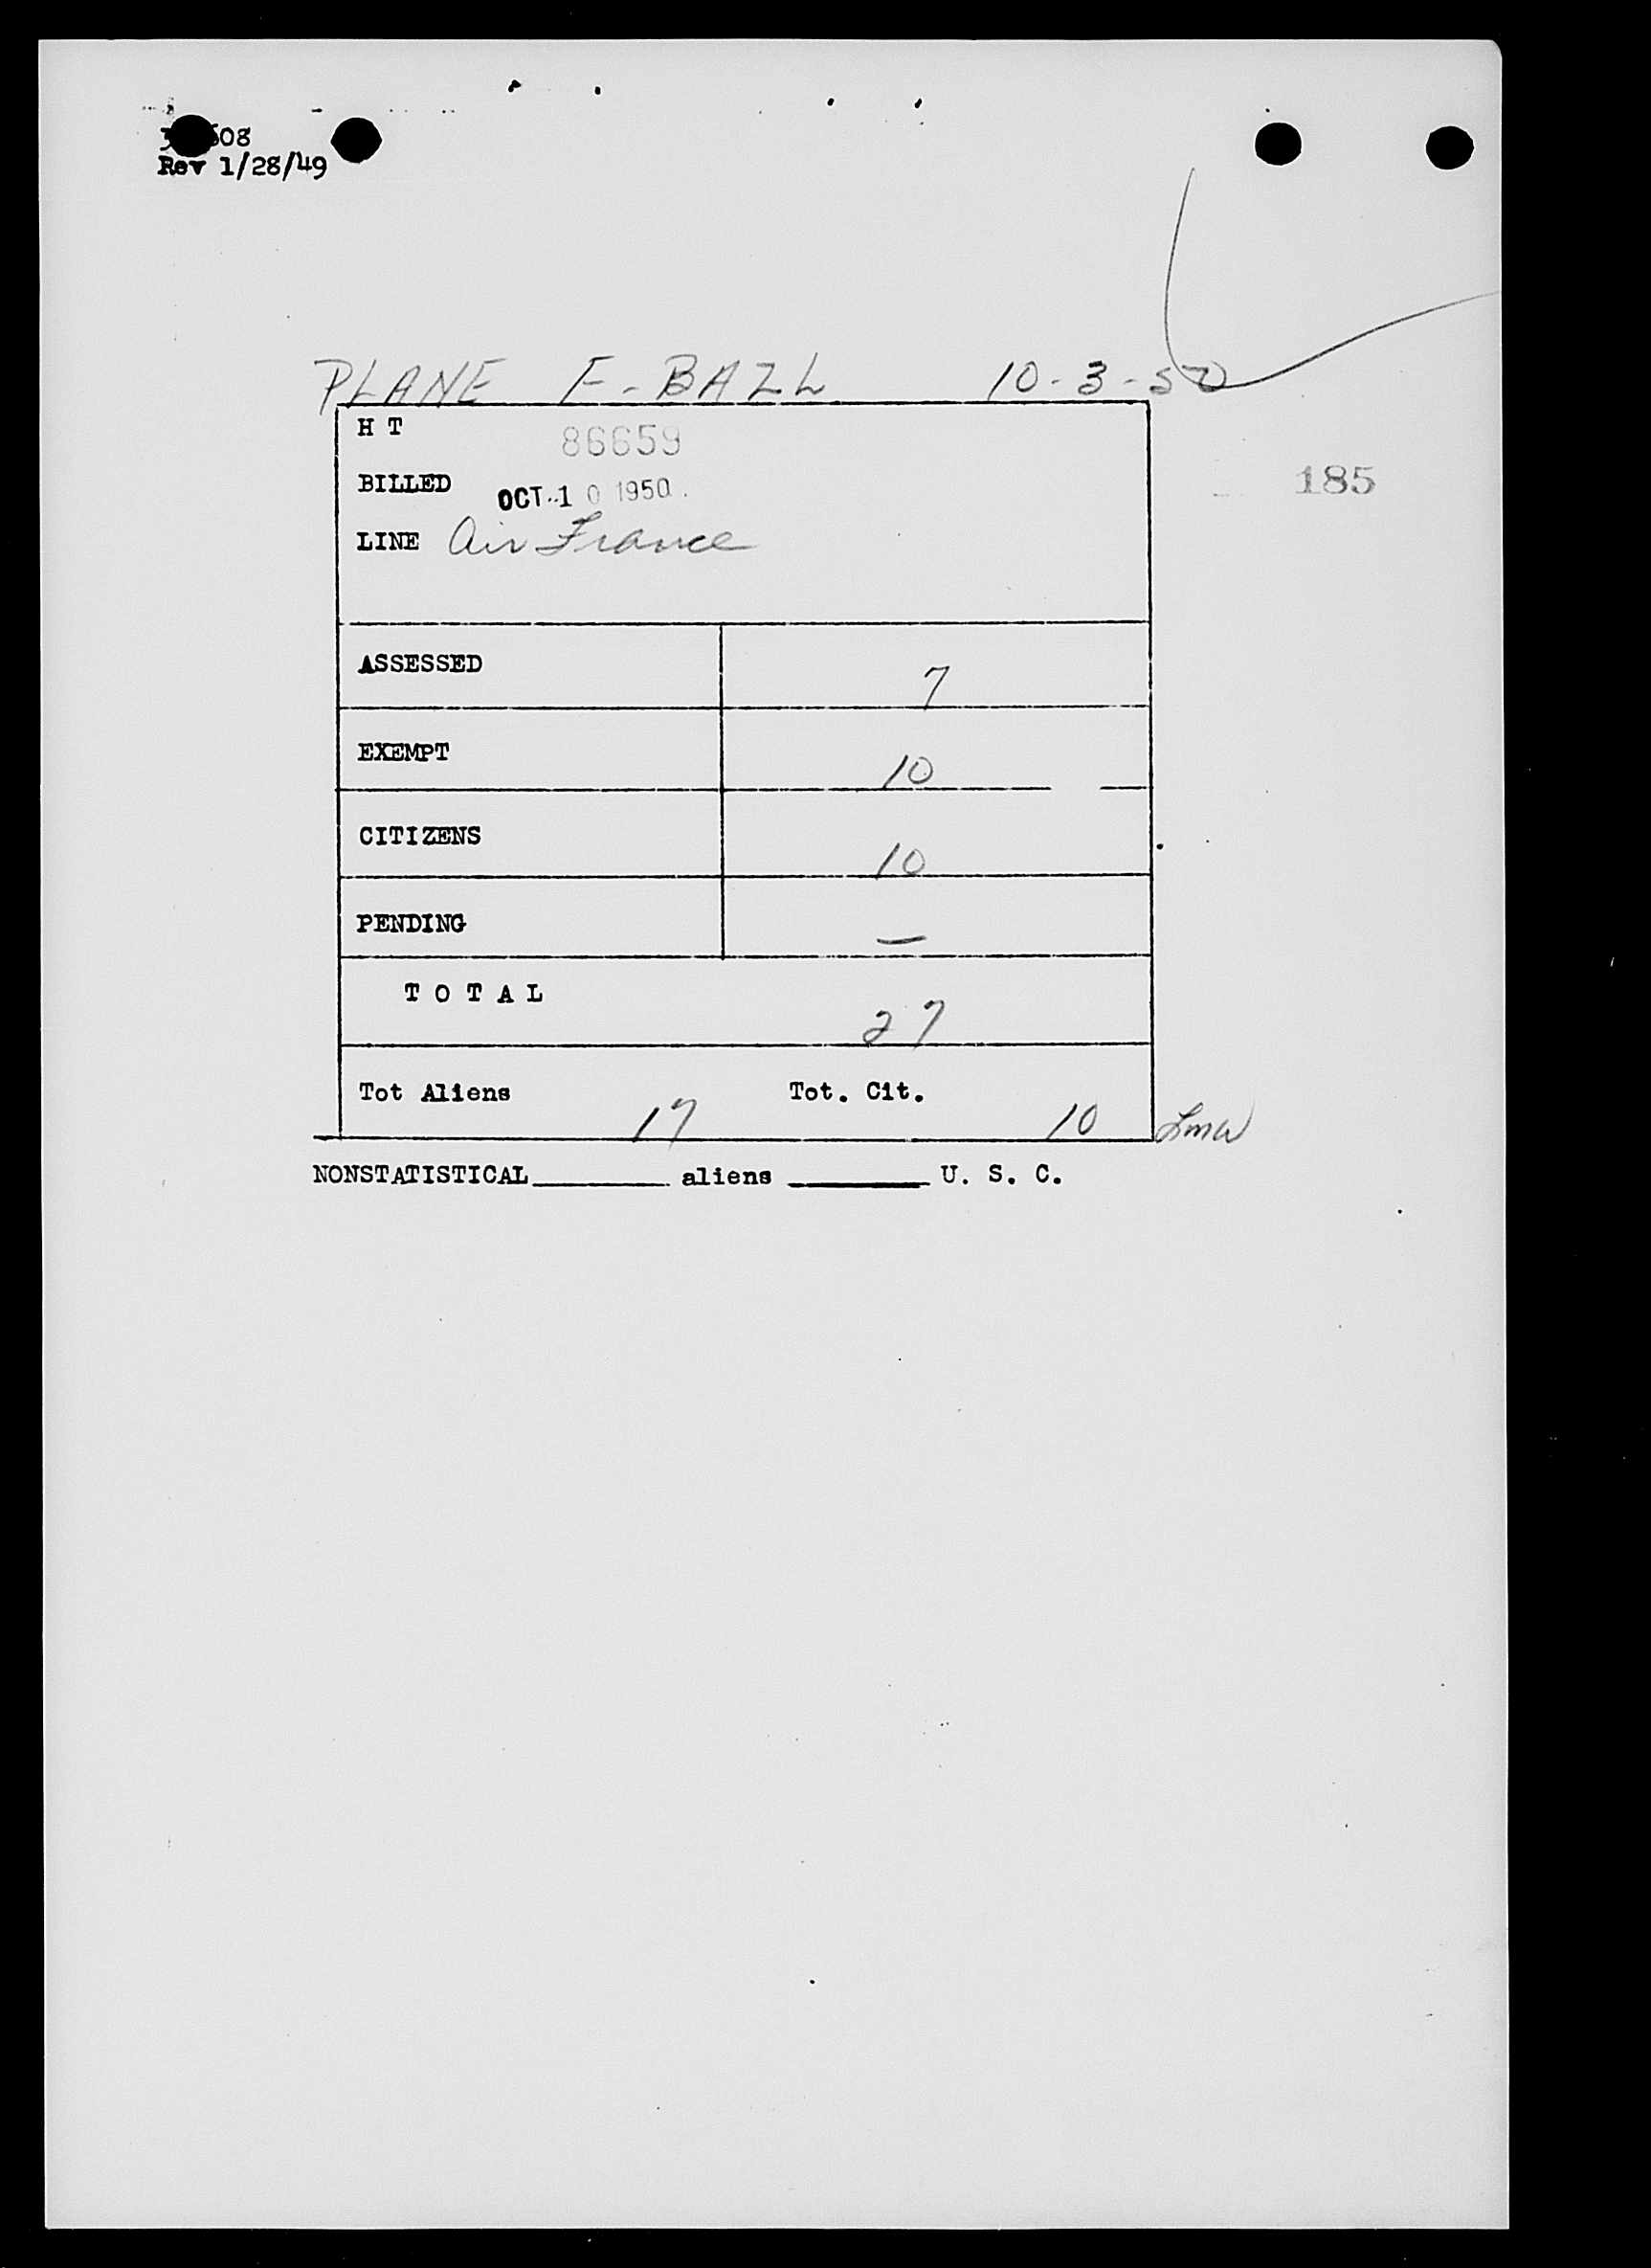 Rev 1/28/49
PLANE F-BAZL 10-3-50
H T 86659
185
BILLED OCT 10 1950
LINE Air France
ASSESSED 7
EXEMPT 10
CITIZENS 10
PENDING —
TOTAL 27
Tot Aliens 17 Tot. Cit. 10 Lmw
NONSTATISTICAL______ aliens ______ U. S. C.